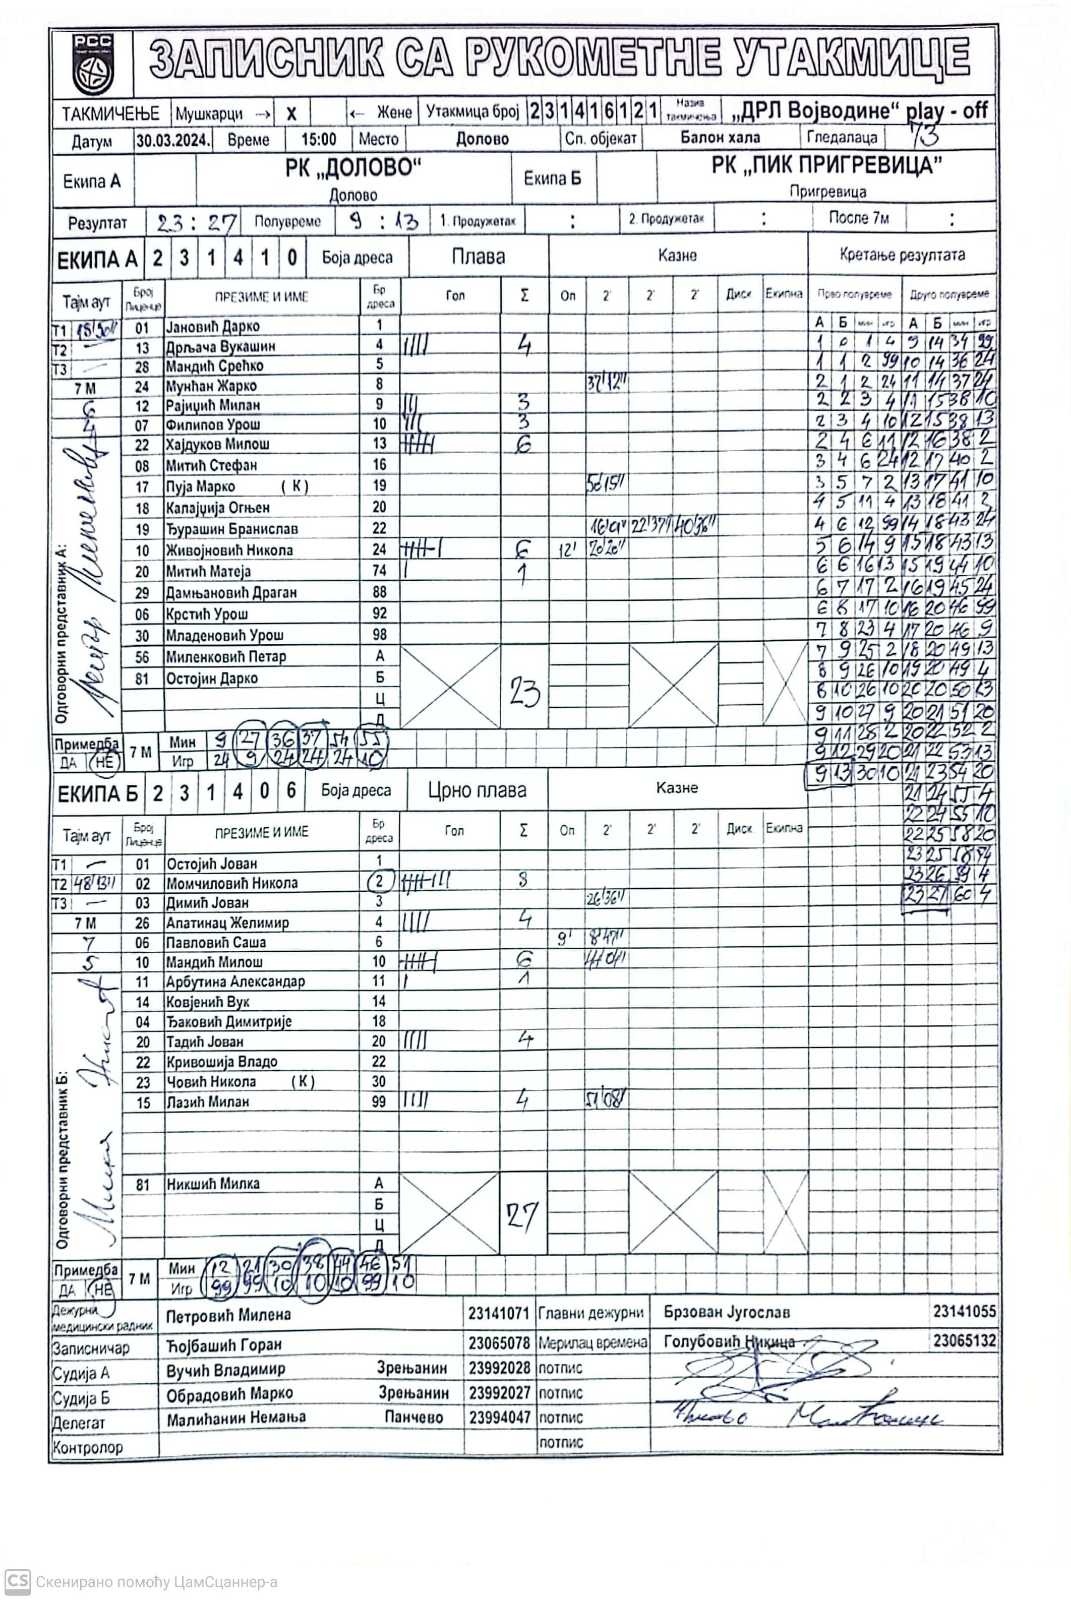 РСС
ЗАПИСНИК СА РУКОМЕТНЕ УТАКМИЦЕ
ТАКМИЧЕЊЕ Мушкарци → X ← Жене Утакмица број 2 3 1 4 1 6 1 2 1 Назив такмичења „ДРЛ Војводине“ play - off
Датум 30.03.2024. Време 15:00 Место Долово Сп. објекат Балон хала Гледалаца 73
Екипа А РК „ДОЛОВО“ Долово Екипа Б РК „ПИК ПРИГРЕВИЦА“ Пригревица
Резултат 23 : 27 Полувреме 9 : 13 1. Продужетак : 2. Продужетак : После 7м :
ЕКИПА А 2 3 1 4 1 0 Боја дреса Плава Казне Кретање резултата
Тајм аут Број Лиценце ПРЕЗИМЕ И ИМЕ Бр дреса Гол Σ Оп 2' 2' 2' Диск Екипна Прво полувреме Друго полувреме
А Б мин игр А Б мин игр
Т1 18'50'' 01 Јановић Дарко 1
Т2 — 13 Дрљача Вукашин 4 |||| 4
Т3 — 28 Мандић Срећко 5
7 М 24 Мунћан Жарко 8 37'12''
6 12 Рајиџић Милан 9 ||| 3
07 Филипов Урош 10 ||| 3
22 Хајдуков Милош 13 6
08 Митић Стефан 16
17 Пуја Марко ( К ) 19
18 Калајџија Огњен 20
19 Ђурашин Бранислав 22 16'01'' 22'37'' 40'36''
10 Живојновић Никола 24 6 12' 20'20''
20 Митић Матеја 74 | 1
29 Дамњановић Драган 88
06 Крстић Урош 92
30 Младеновић Урош 98
56 Миленковић Петар А
81 Остојин Дарко Б 23
Ц
Д
Одговорни представник А:
1 0 1 4 9 14 34 99
1 1 2 99 10 14 36 24
2 1 2 24 11 14 37 24
2 2 3 4 11 15 38 10
2 3 4 10 12 15 38 13
2 4 6 11 12 16 38 2
3 4 6 24 12 17 40 2
3 5 7 2 13 17 41 10
4 5 11 4 13 18 41 2
4 6 12 99 14 18 43 24
5 6 14 9 15 18 43 13
6 6 16 13 15 19 44 10
6 7 17 2 16 19 45 24
6 8 17 10 16 20 46 99
7 8 23 4 17 20 46 9
7 9 25 2 18 20 49 13
8 9 26 10 19 20 49 4
8 10 26 10 20 20 50 13
9 10 27 9 20 21 51 20
9 11 28 2 20 22 52 2
9 12 29 20 21 22 53 13
9 13 30 10 21 23 54 20
21 24 55 4
22 24 55 10
22 25 58 20
23 25 58 74
23 26 59 4
23 27 60 4
Примедба ДА НЕ 7 М Мин 9 27 36 37 54 55
Игр 24 9 24 24 24 10
ЕКИПА Б 2 3 1 4 0 6 Боја дреса Црно плава Казне
Тајм аут Број Лиценце ПРЕЗИМЕ И ИМЕ Бр дреса Гол Σ Оп 2' 2' 2' Диск Екипна
Т1 — 01 Остојић Јован 1
Т2 48'13'' 02 Момчиловић Никола 2 8
Т3 — 03 Димић Јован 3 26'36''
7 М 26 Апатинац Желимир 4 |||| 4
7 06 Павловић Саша 6 9' 8'47''
5 10 Мандић Милош 10 6 44'04''
11 Арбутина Александар 11 | 1
14 Ковјенић Вук 14
04 Ђаковић Димитрије 18
20 Тадић Јован 20 |||| 4
22 Кривошија Владо 22
23 Човић Никола ( К ) 30
15 Лазић Милан 99 |||| 4 51'08''
81 Никшић Милка А
Б 27
Ц
Д
Одговорни представник Б:
Примедба ДА НЕ 7 М Мин 12 21 30 38 44 46 51
Игр 99 99 10 10 10 99 10
Дежурни медицински радник Петровић Милена 23141071 Главни дежурни Брзован Југослав 23141055
Записничар Ћојбашић Горан 23065078 Мерилац времена Голубовић Никица 23065132
Судија А Вучић Владимир Зрењанин 23992028 потпис
Судија Б Обрадовић Марко Зрењанин 23992027 потпис
Делегат Малићанин Немања Панчево 23994047 потпис
Контролор потпис
CS Скенирано помоћу ЦамСцаннер-а